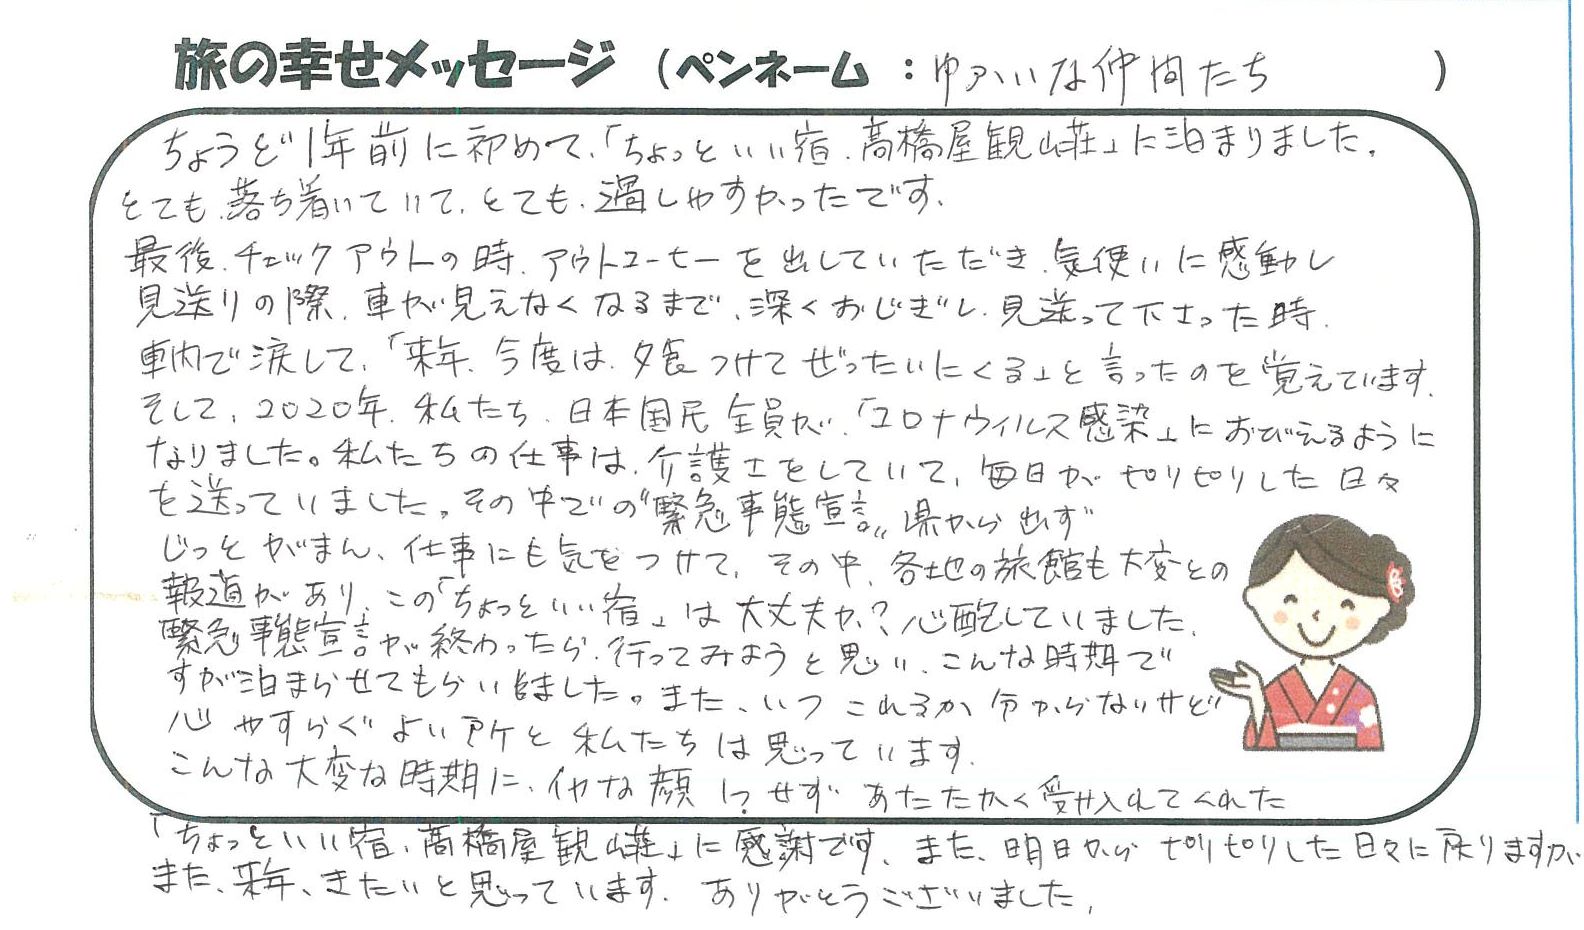 旅の幸せメッセージ（ペンネーム：ゆかいな仲間たち）
ちょうど1年前に初めて、「ちょっといい宿、高橋屋観山荘」に泊まりました。
とても、落ち着いていて、とても、過しやすかったです、
最後、チェックアウトの時、アウトコーヒーを出していただき、気使いに感動し
見送りの際、車が見えなくなるまで、深くおじぎし、見送って下さった時、
車内で涙して、「来年、今度は、夕食つけてぜったいにくる」と言ったのを覚えています、
そして、2020年、私たち、日本国民全員が、「コロナウィルス感染」におびえるように
なりました。私たちの仕事は、介護士をしていて、毎日がピリピリした日々
を送っていました。その中での"緊急事態宣言"県から出ず
じっとがまん、仕事にも気をつけて、その中、各地の旅館も大変との
報道があり、この「ちょっといい宿」は大丈夫か？心配していました、
緊急事態宣言が終わったら、行ってみようと思い、こんな時期で
すが泊まらせてもらいました。また、いつこれるか、分からないけど
心やすらぐよい所と私たちは思っています、
こんな大変な時期に、イヤな顔1つせずあたたかく受け入れてくれた
「ちょっといい宿、高橋屋観山荘」に感謝です、また、明日からピリピリした日々に戻りますが、
また、来年、きたいと思っています、ありがとうございました、